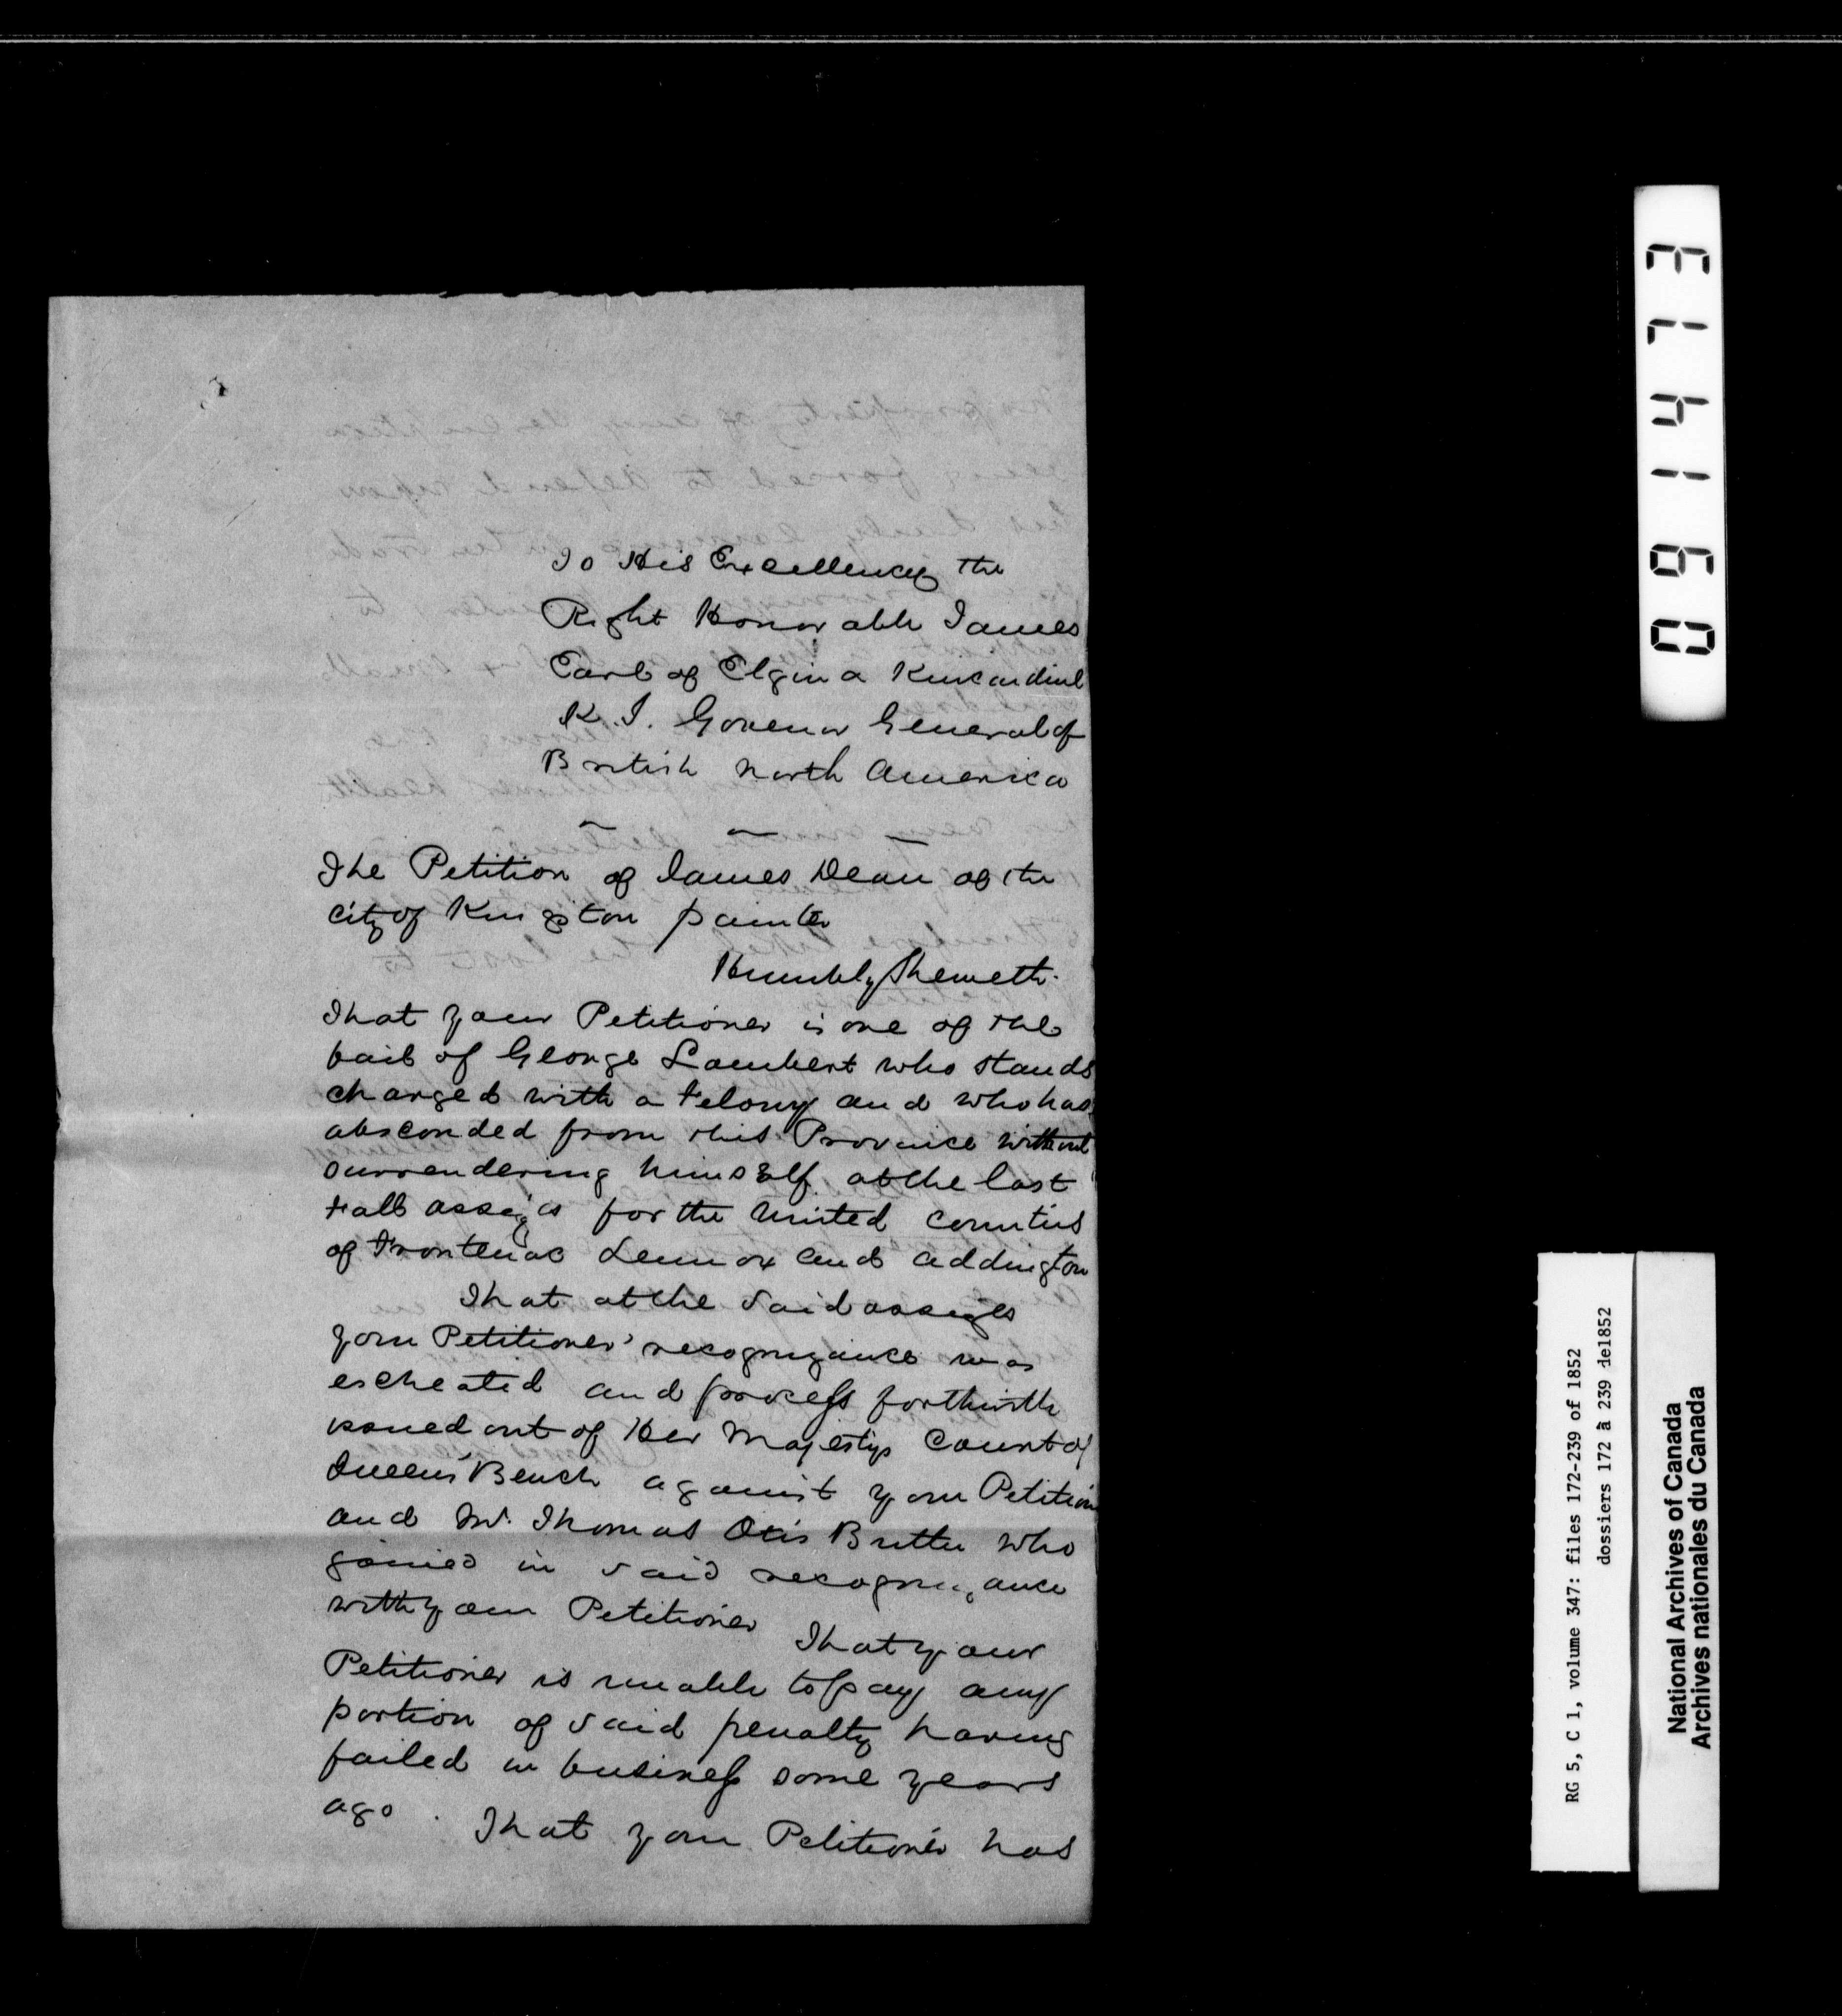 To His Excellency the
Right Honorable James
Earl of Elgin a Kincardine
K. T. Govenor General of
British North America
The Petition of James Dean of the
city of Kingston painter
Humbly Sheweth.
That your Petitioner is one of the
bail of George Lambert who stands
charged with a Felony and who has
absconded from this Province without
surrendering himself at the last
Fall assizes for the United Counties
of Frontenac Lennox and Addington
That at the said assizes
your Petitioner's recognizance was
escheated and process forthwith
issued out of Her Majestys Court of
Queens Bench against your Petition
and Mr. Thomas Otis Butler who
joined in said recognizance
with your Petitioner That your
Petitioner is unable to pay any
portion of said penalty having
failed in business some years
ago. That your Petitioner has
091473
RG 5, C 1, volume 347: files 172-239 of 1852
dossiers 172 à 239 de1852
National Archives of Canada
Archives nationales du Canada